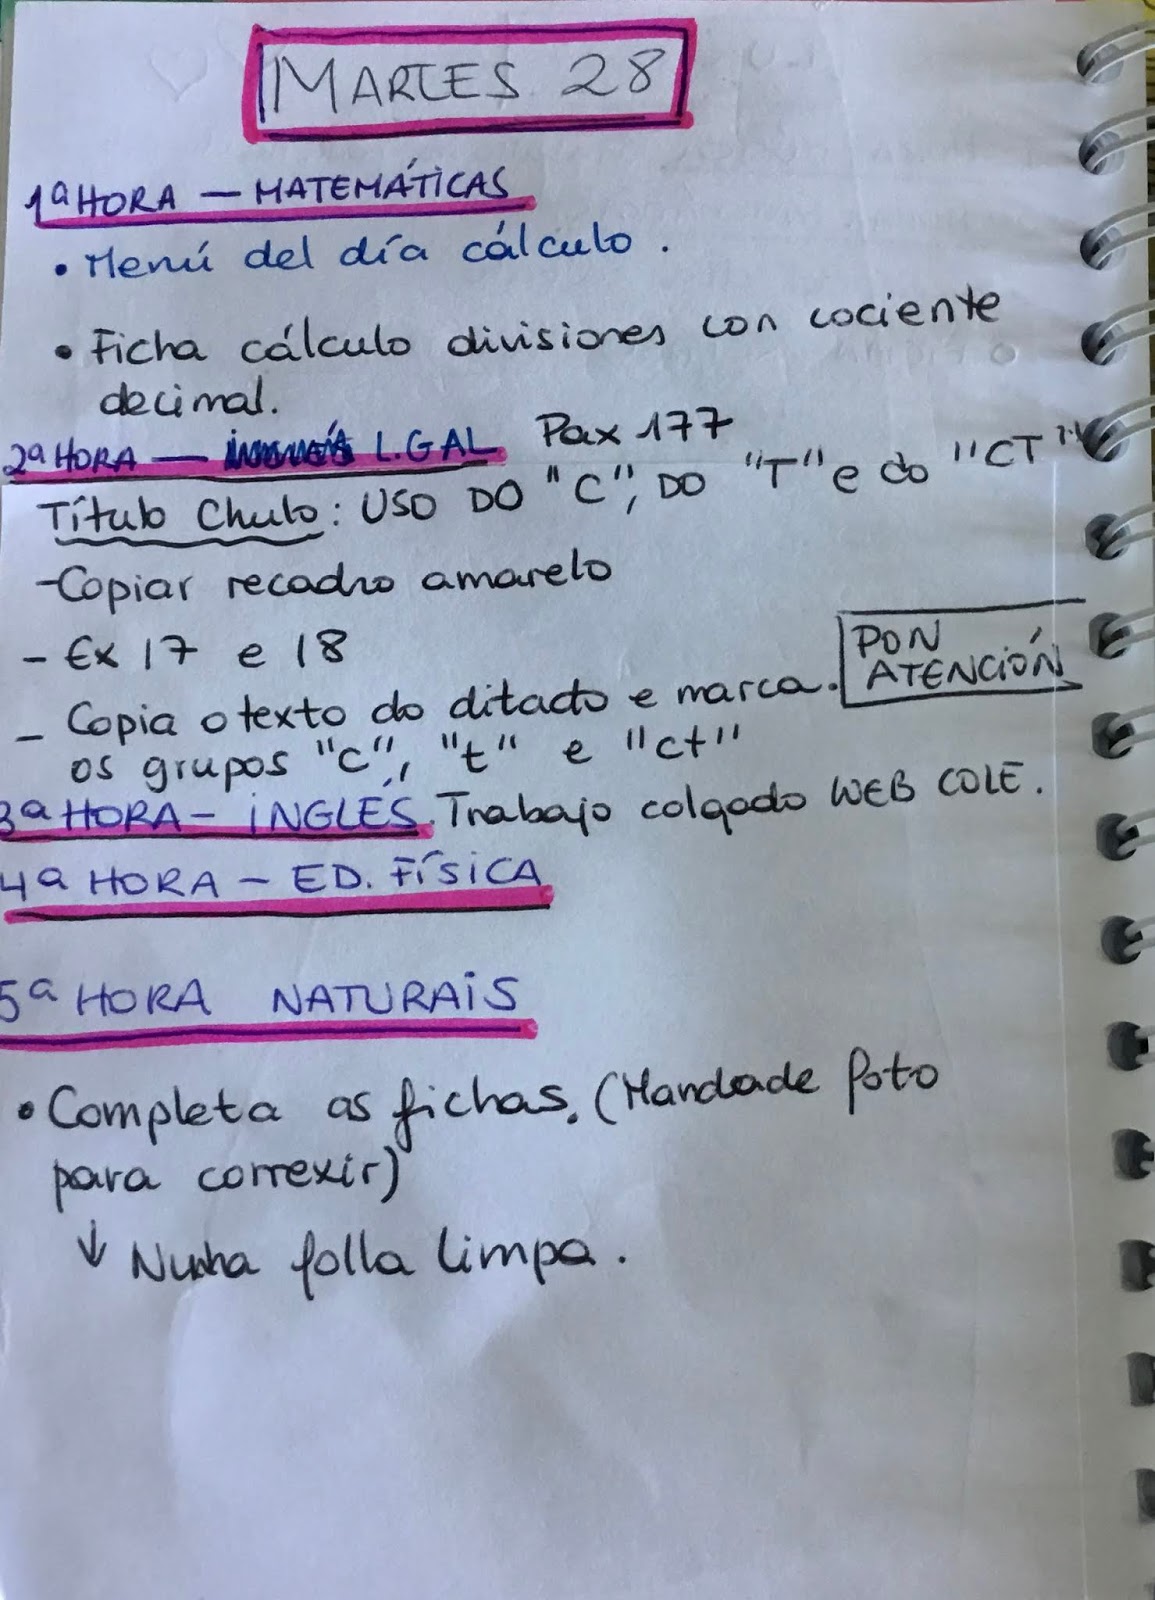 MARTES 28
1ª HORA – MATEMÁTICAS
• Menú del día cálculo.
• Ficha cálculo divisiones con cociente
decimal.
2ª HORA — L.GAL Pax 177
Título Chulo: USO DO "C", DO "T" e do "CT"
- Copiar recadro amarelo
- Ex 17 e 18
PON
ATENCIÓN
- Copia o texto do ditado e marca.
os grupos "c", "t" e "ct"
3ª HORA – INGLÉS. Trabajo colgado WEB COLE.
4ª HORA – ED. FÍSICA
5ª HORA NATURAIS
• Completa as fichas. (Mandade foto
para correxir)
↓ Nunha folla limpa.